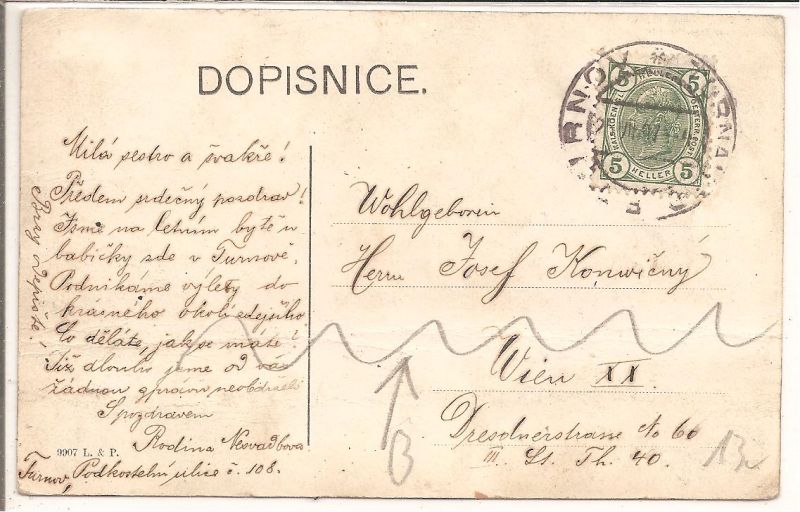 DOPISNICE.
Milá sestro a švakře!
Předem srdečný pozdrav!
Jsme na letním bytě u
babičky zde v Turnově.
Podnikáme výlety do
krásného okolí zdejšího
Co děláte, jak se máte?
Již dlouho jsme od vás
žádnou zprávu neobdrželi
S pozdravem
Rodina Nesvadbova
Turnov, Podkostelní ulice č. 108.
Brzy pište!
9907 L. & P.
Wohlgeboren
Herrn Josef Konwičný
Wien XX.
Dresdnerstrasse No 60
III. St. Th. 40.
B
5 5
5 HELLER 5
TURNOV